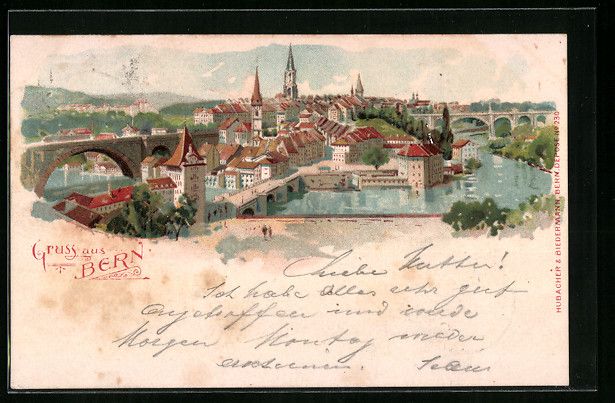 Gruss aus
BERN
Liebe Mutter!
Ich habe Alles sehr gut
angetroffen und werde
Morgen Montag wieder
HUBACHER & BIEDERMANN, BERN. DEPOSE Nº 230